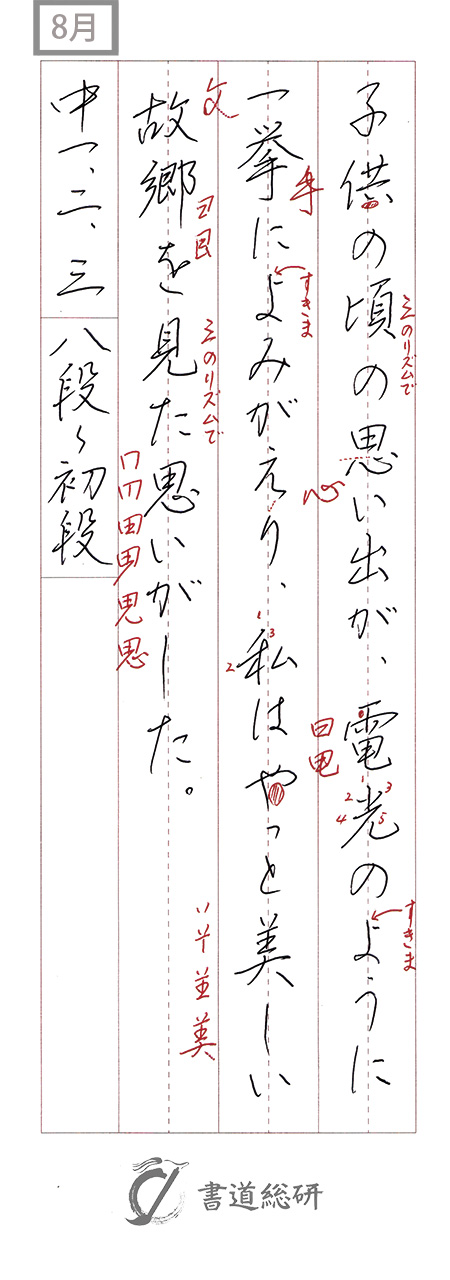 8月
子供の頃の思い出が、電光のように
三のリズムで
心
日电
1
2
3
4
5
すきま
一挙によみがえり、私はやっと美しい
手
すきま
1
2
3
故郷を見た思いがした。
文
彐艮
三のリズムで
丷
美
中一、二、三
八段〜初段
書道総研